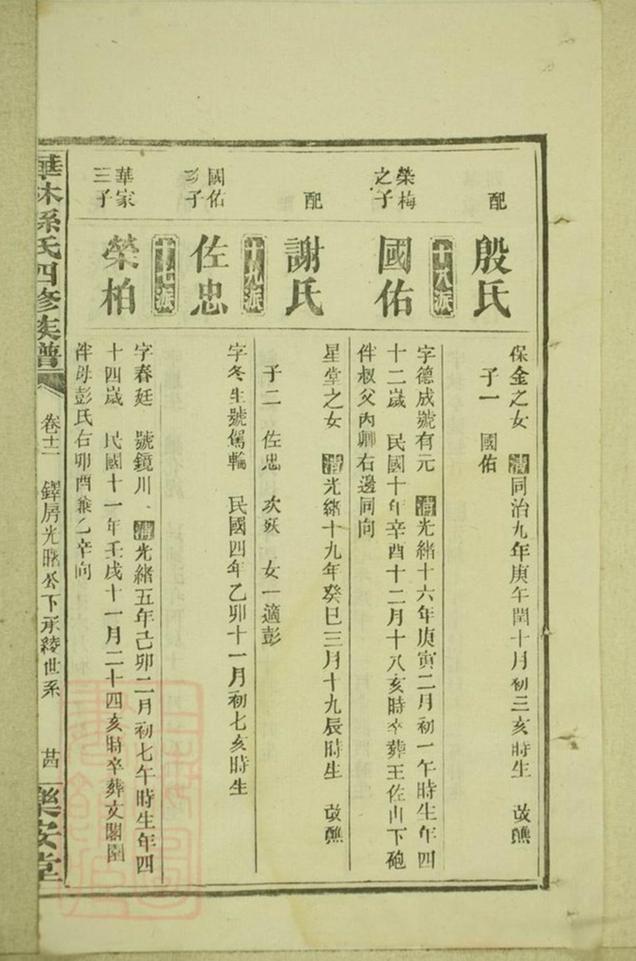 配
殷氏
保金之女 清同治九年庚午閏十月初三亥時生 改醮
子一 國佑
榮梅之子
十八派
國佑
字德成號有元 清光緒十六年庚寅二月初一午時生年四
十二歲 民國十年辛酉十二月十八亥時卒葬王佐山下砲
伴叔父內卿右邊同向
配
謝氏
星堂之女 清光緒十九年癸巳三月十九辰時生 改醮
子二 佐忠 次殀 女一適彭
國佑
子
十九派
佐忠
字冬生號駕輪 民國四年乙卯十一月初七亥時生
華家三子
十七派
榮柏
字春廷 號鏡川 清光緒五年己卯二月初七午時生年四
十四歲 民國十一年壬戌十一月二十四亥時卒葬文閣園
伴母彭氏右卯酉兼乙辛向
華林孫氏四修族譜
卷十二 鐸房光曙公下承綾世系
樂安堂